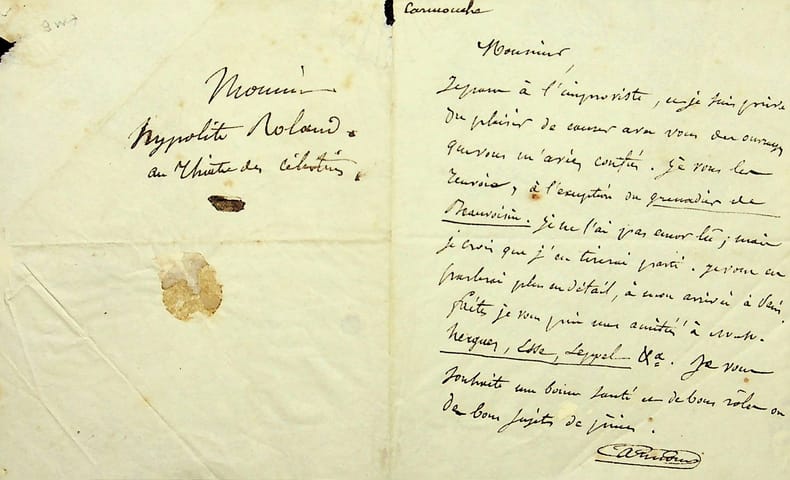 Monsieur
hypolite Roland.
au Théatre des célestins.
Carmouche
Monsieur,
Je pars à l'improviste, et je suis privé
du plaisir de causer avec vous des ouvrages
que vous m'aviez confiés. je vous les
renvoie, à l'exception du grenadier de
Beauvoisin. je ne l'ai pas encor lû ; mais
je crois que j'en tirerai parti. je vous en
parlerai plus en détail, à mon arrivée à
faites je vous prie mes amitiés à M.M.
&a. Je vous
souhaite une bonne santé et de bons rôles ou
de bons sujets de pièces.
Carmouche